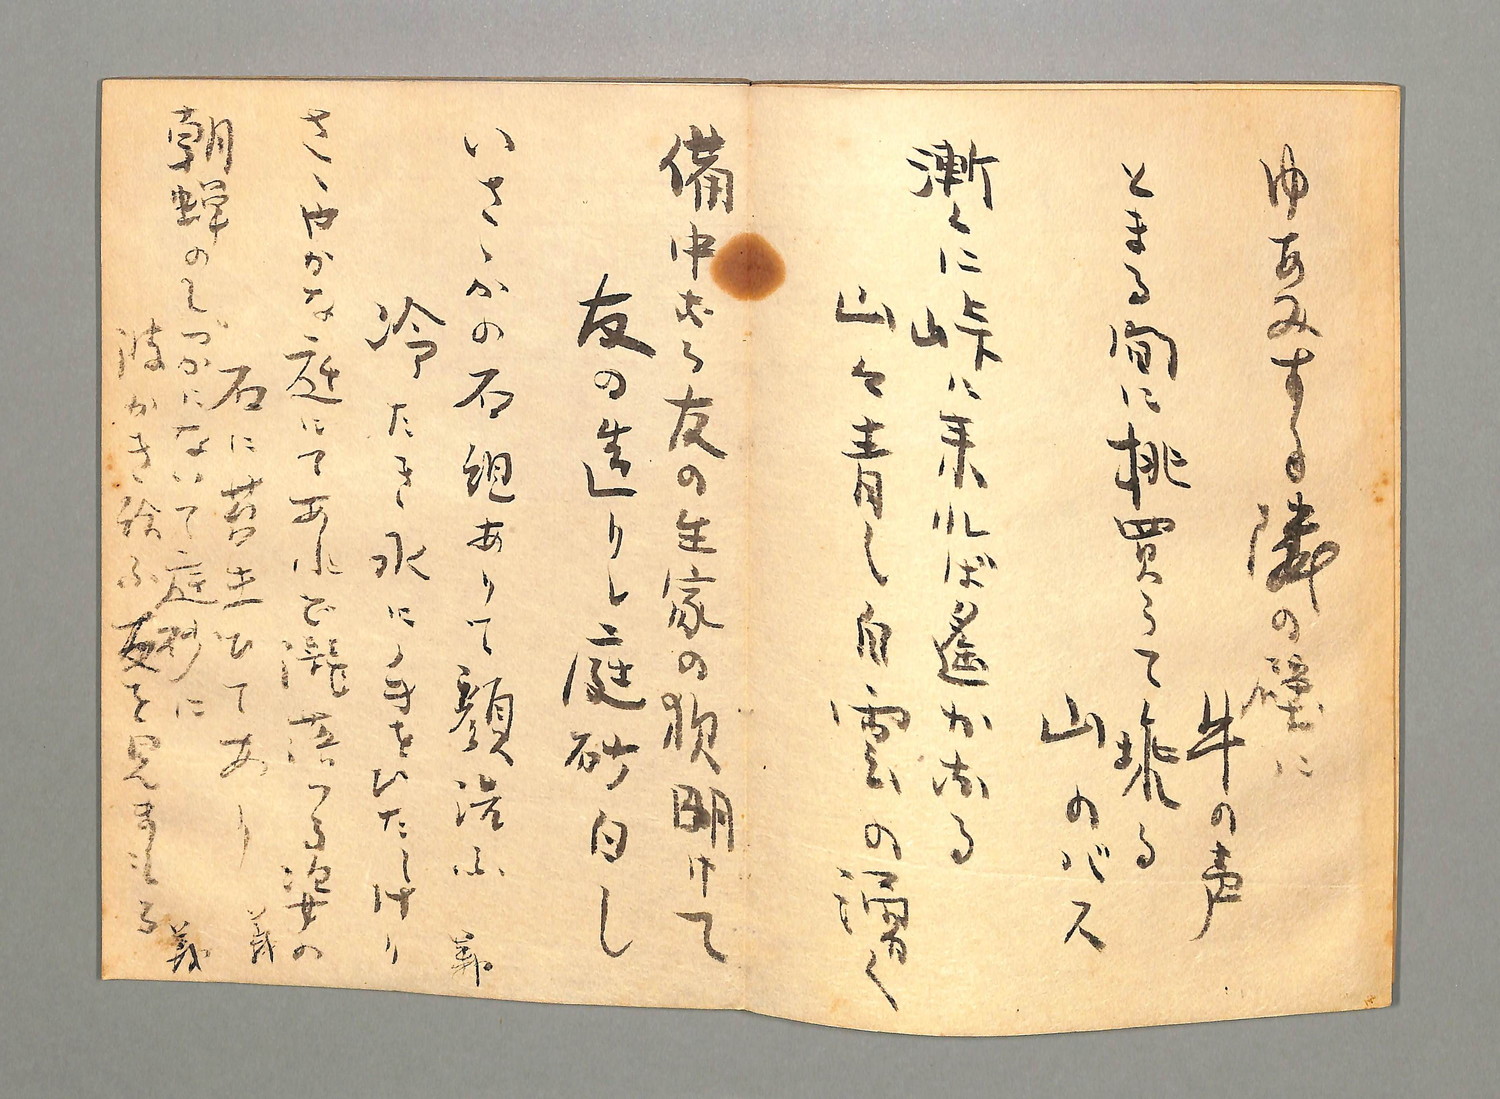 ゆあみする隣の壁に
牛の声
とまる間に桃買うて乗る
山のバス
漸くに峠に来れば遙かなる
山々青し白雲の湧く
備中なる友の生家の 明けて
友の造りし庭砂白し
いさゝかの石組ありて顔洗ふ
冷たき水に手をひたしけり
さゝやかな庭にてあれど滝落つる の
石に苔生ひてあり
朝蝉のしづかにないて庭 に
 かき給ふ友を見まもる